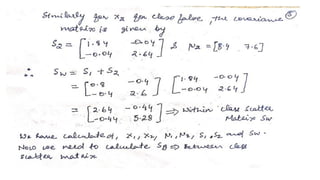 Similarly for x2 for class false, the covariance ⑤
matrix is given by
S2 = [ 1.84 -0.04 ] & N2 = [8.4 7.6]
[ -0.04 2.64 ]
∴ SW = S1 + S2
= [ 0.8 -0.4 ] [ 1.84 -0.04 ]
[ -0.4 2.6 ] [ -0.04 2.64 ]
= [ 2.64 -0.44 ] ⇒ Within class Scatter
[ -0.44 5.28 ] Matrix Sw
We have calculated, x1, x2, N1, N2, S1, S2 and Sw.
Now we need to calculate SB ⇒ Between class
scatter matrix